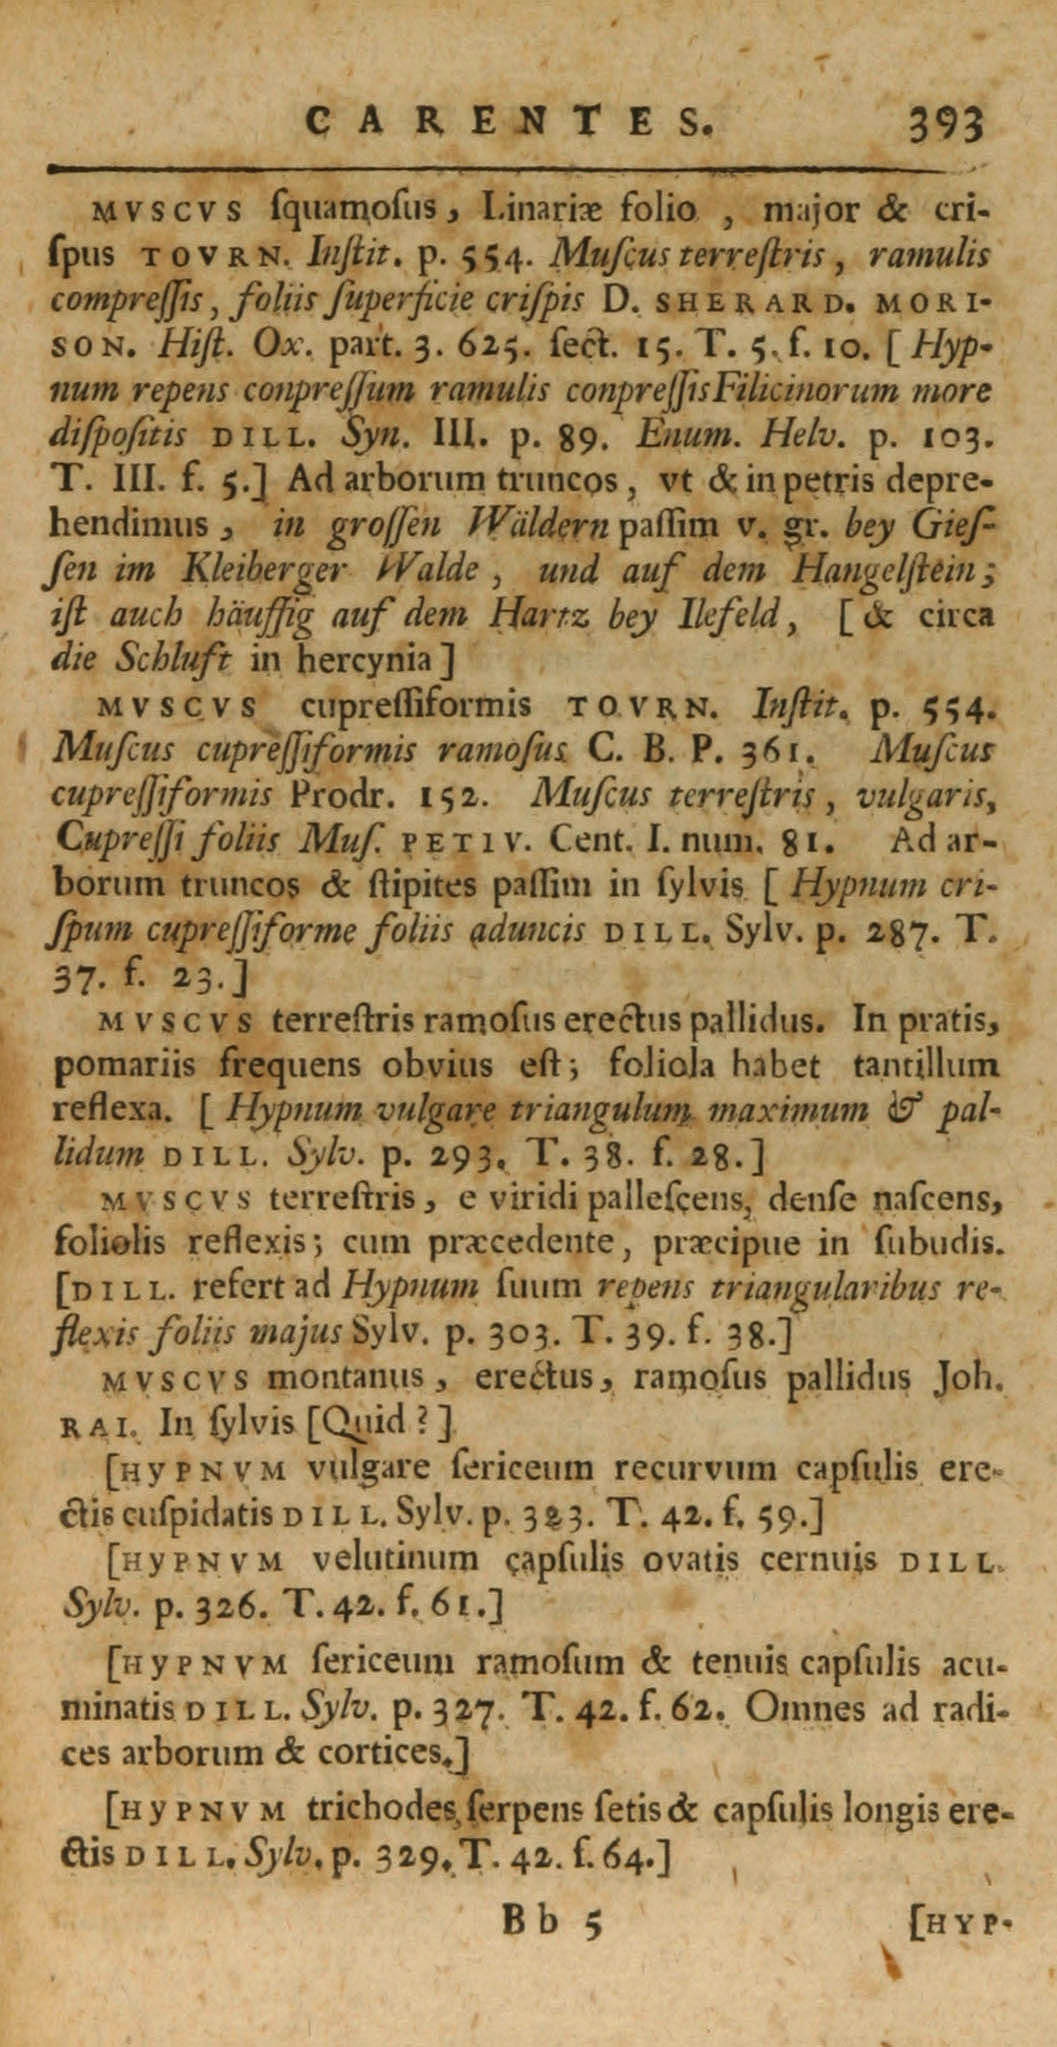 CARENTES. 393
MVSCVS ſquamoſus, Linariæ folio, major & cri-
ſpus TOVRN. Inſtit. p. 554. Muſcus terreſtris, ramulis
compreſſis, foliis ſuperficie criſpis D. SHERARD. MORI-
SON. Hiſt. Ox. part. 3. 625. ſect. 15. T. 5. f. 10. [Hyp-
num repens conpreſſum ramulis conpreſſis Filicinorum more
diſpoſitis DILL. Syn. III. p. 89. Enum. Helv. p. 103.
T. III. f. 5.] Ad arborum truncos, vt & in petris depre-
hendimus, in groſſen Wäldern paſſim v. gr. bey Gieſ-
ſen im Kleiberger Walde, und auf dem Hangelſtein;
iſt auch häuffig auf dem Hartz bey Ilefeld, [& circa
die Schluft in hercynia]
MVSCVS cupreſſiformis TOVRN. Inſtit. p. 554.
Muſcus cupreſſiformis ramoſus C. B. P. 361. Muſcus
cupreſſiformis Prodr. 152. Muſcus terreſtris, vulgaris,
Cupreſſi foliis Muſ. PETIV. Cent. I. num. 81. Ad ar-
borum truncos & ſtipites paſſim in ſylvis [Hypnum cri-
ſpum cupreſſiforme foliis aduncis DILL. Sylv. p. 287. T.
37. f. 23.]
MVSCVS terreſtris ramoſus erectus pallidus. In pratis,
pomariis frequens obvius eſt; foliola habet tantillum
reflexa. [Hypnum vulgare triangulum maximum & pal-
lidum DILL. Sylv. p. 293. T. 38. f. 28.]
MVSCVS terreſtris, e viridi palleſcens, denſe naſcens,
foliolis reflexis; cum præcedente, præcipue in ſubudis.
[DILL. refert ad Hypnum ſuum repens triangularibus re-
flexis foliis majus Sylv. p. 303. T. 39. f. 38.]
MVSCVS montanus, erectus, ramoſus pallidus Joh.
RAI. In ſylvis [Quid?]
[HYPNVM vulgare ſericeum recurvum capſulis ere-
ctis cuſpidatis DILL. Sylv. p. 323. T. 42. f. 59.]
[HYPNVM velutinum capſulis ovatis cernuis DILL.
Sylv. p. 326. T. 42. f. 61.]
[HYPNVM ſericeum ramoſum & tenuis capſulis acu-
minatis DILL. Sylv. p. 327. T. 42. f. 62. Omnes ad radi-
ces arborum & cortices.]
[HYPNVM trichodes ſerpens ſetis & capſulis longis ere-
ctis DILL. Sylv. p. 329. T. 42. f. 64.]
Bb 5 [HYP-